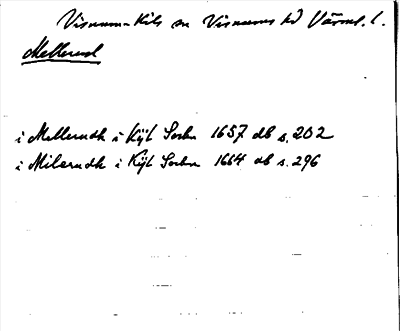 Visnum-Kils sn Visnums hd Värml. l.
Mellerud
i Mellerudh i Kijl Sochn 1657 db s. 202
i Milerudh i Kijl Sochn 1664 db s. 296